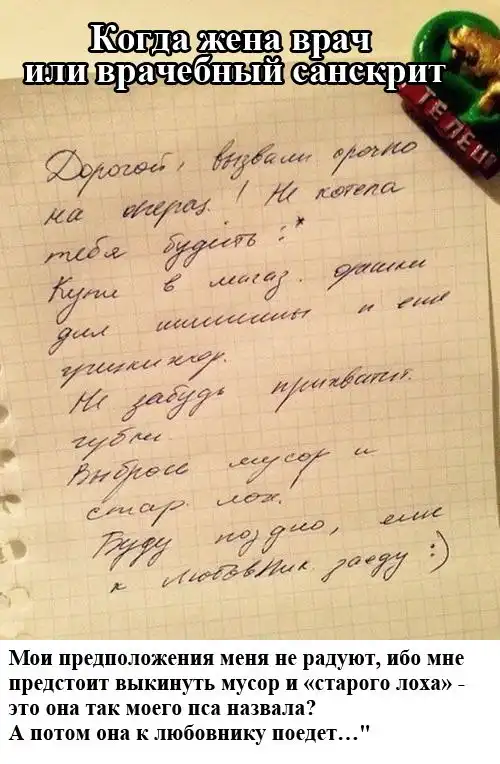 Когда жена врач
или врачебный санскрит
ТЕ ЛЕЦ
Дорогой, вызвали срочно
на операц. ! Не хотела
тебя будить :*
Купи в магаз.
для и еще
Не забудь прихватит.
губки.
Выброси мусор и
стар. лох.!
Буду поздно, еще
к любовник. заеду :)
Мои предположения меня не радуют, ибо мне
предстоит выкинуть мусор и «старого лоха» -
это она так моего пса назвала?
А потом она к любовнику поедет…"